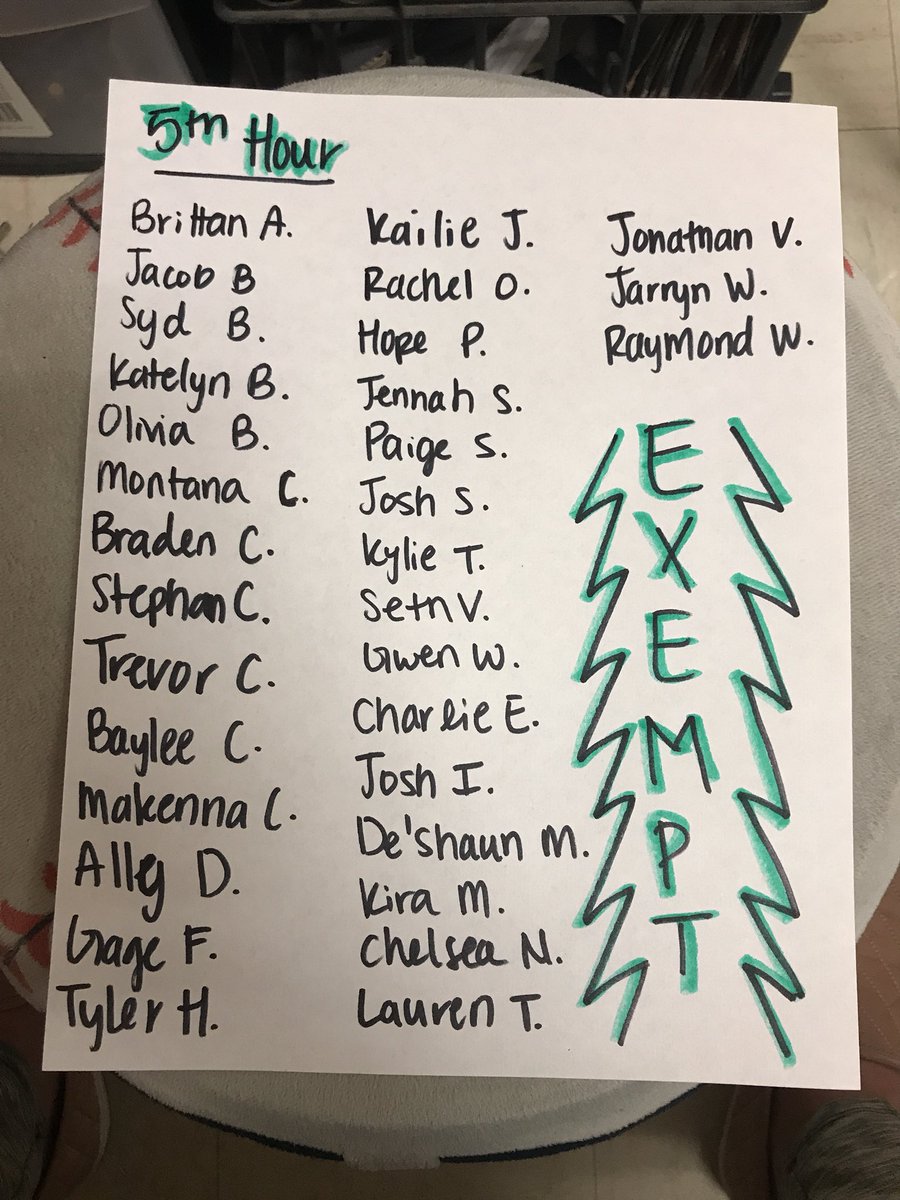 5th Hour
Brittan A.
Jacob B
Syd B.
Katelyn B.
Olivia B.
Montana C.
Braden C.
Stephan C.
Trevor C.
Baylee C.
Makenna C.
Ally D.
Gage F.
Tyler H.
Kailie J.
Rachel O.
Hope P.
Jennah S.
Paige S.
Josh S.
Kylie T.
Seth V.
Gwen W.
Charlie E.
Josh I.
De'shaun M.
Kira M.
Chelsea N.
Lauren T.
Jonathan V.
Jarryn W.
Raymond W.
EXEMPT